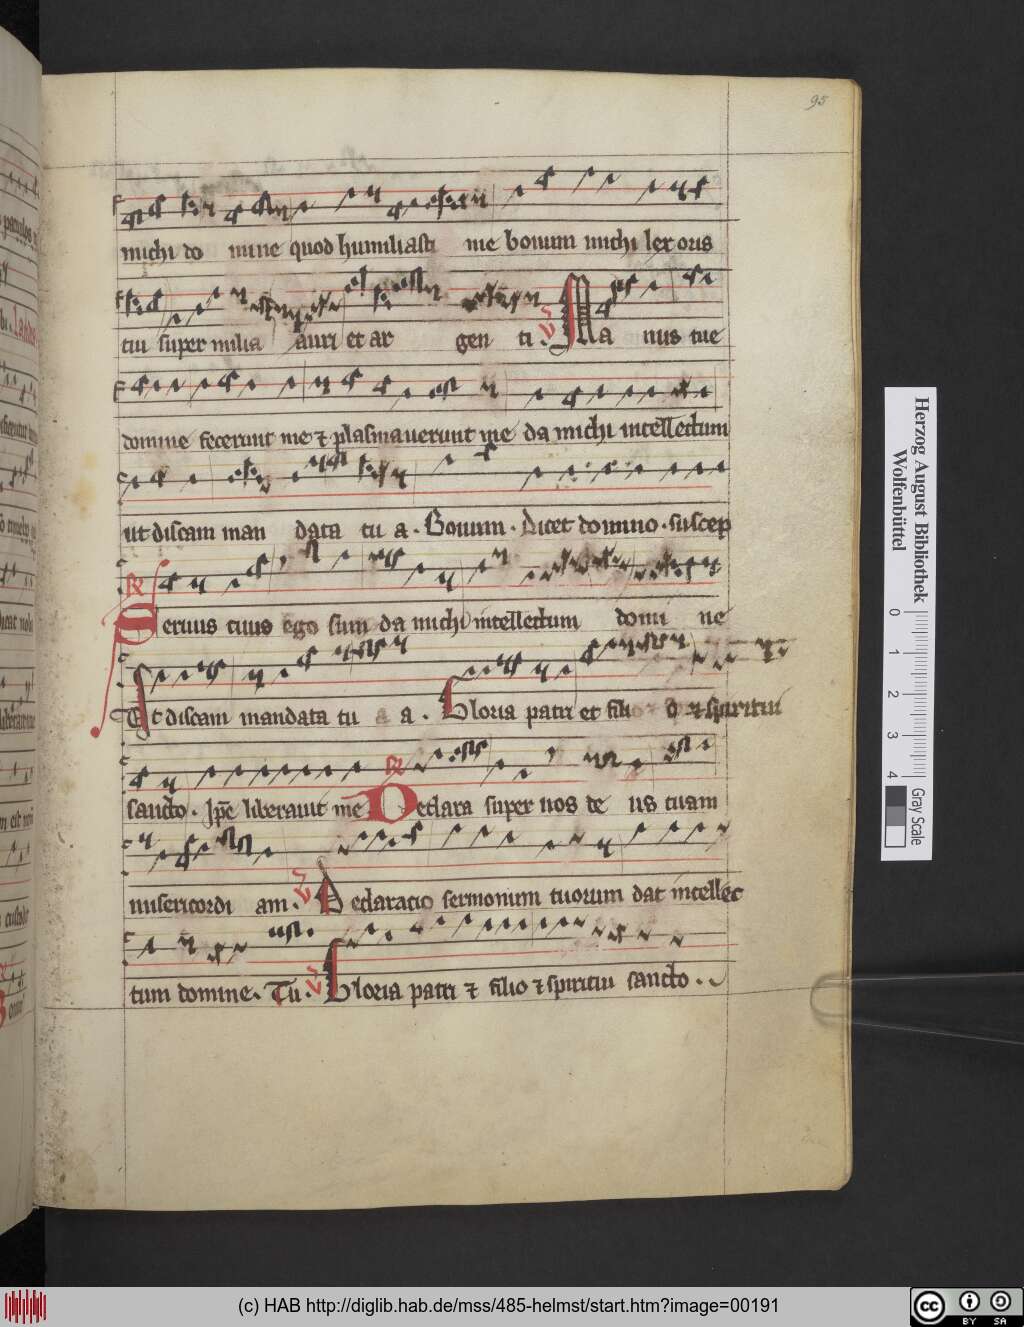 95
michi do mine quod humiliasti me bonum michi lex oris
tui super milia auri et ar gen ti . V Ma nus tue
domine fecerunt me ⁊ plasmauerunt me da michi intellectum
ut discam man data tu a . Bonum . Dicet domino . suscep
R
Seruus tuus ego sum da michi intellectum domi ne
Et discam mandata tu a . Gloria patri et filio ⁊ spiritui
sancto . Ip̄e liberauit me R Declara super nos de us tuam
misericordi am . V Declaratio sermonum tuorum dat intellec
tum domine . Tu . V Gloria patri ⁊ filio ⁊ spiritui sancto .
Herzog August Bibliothek
Wolfenbüttel
0 1 2 3 4
Gray Scale
(c) HAB http://diglib.hab.de/mss/485-helmst/start.htm?image=00191
cc BY SA